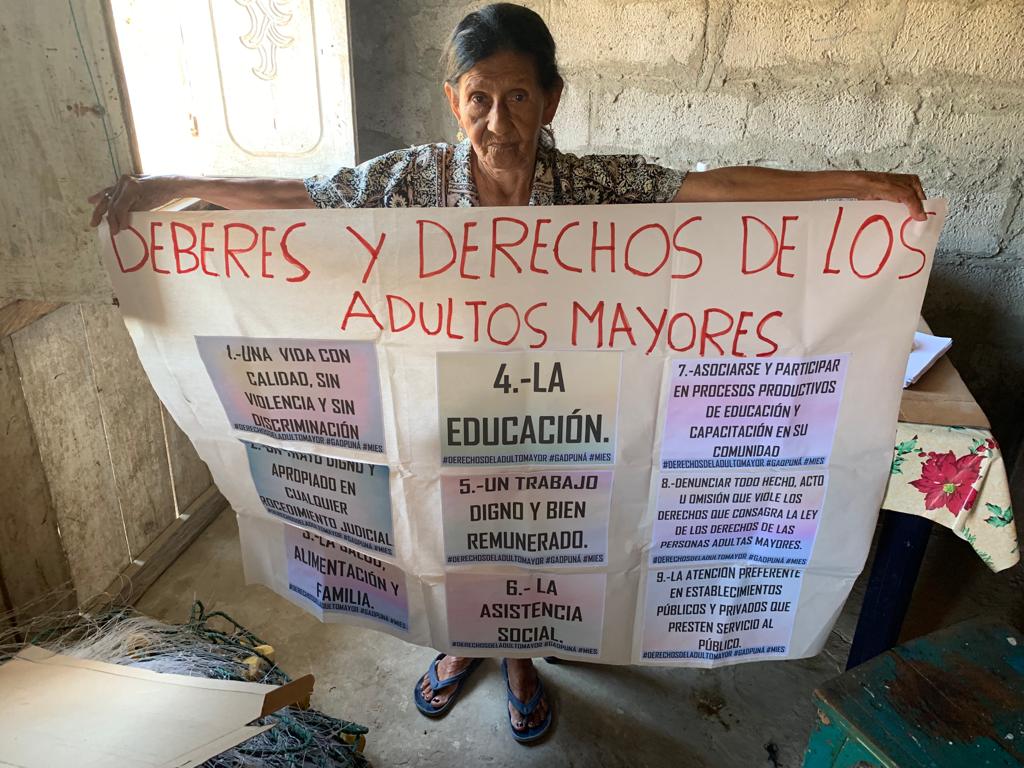 DEBERES Y DERECHOS DE LOS
ADULTOS MAYORES
1.-UNA VIDA CON
CALIDAD, SIN
VIOLENCIA Y SIN
DISCRIMINACIÓN
#DERECHOSDELADULTOMAYOR #GADPUNÁ #MIES
2.-UN TRATO DIGNO Y
APROPIADO EN
CUALQUIER
PROCEDIMIENTO JUDICIAL
#DERECHOSDELADULTOMAYOR #GADPUNÁ #MIES
3.-LA SALUD,
ALIMENTACIÓN Y
FAMILIA.
#DERECHOSDELADULTOMAYOR #GADPUNÁ #MIES
4.-LA
EDUCACIÓN.
#DERECHOSDELADULTOMAYOR #GADPUNÁ #MIES
5.-UN TRABAJO
DIGNO Y BIEN
REMUNERADO.
#DERECHOSDELADULTOMAYOR #GADPUNÁ #MIES
6.-LA
ASISTENCIA
SOCIAL.
#DERECHOSDELADULTOMAYOR #GADPUNÁ #MIES
7.-ASOCIARSE Y PARTICIPAR
EN PROCESOS PRODUCTIVOS
DE EDUCACIÓN Y
CAPACITACIÓN EN SU
COMUNIDAD
#DERECHOSDELADULTOMAYOR #GADPUNÁ #MIES
8.-DENUNCIAR TODO HECHO, ACTO
U OMISIÓN QUE VIOLE LOS
DERECHOS QUE CONSAGRA LA LEY
DE LOS DERECHOS DE LAS
PERSONAS ADULTAS MAYORES.
#DERECHOSDELADULTOMAYOR #GADPUNÁ #MIES
9.-LA ATENCIÓN PREFERENTE
EN ESTABLECIMIENTOS
PÚBLICOS Y PRIVADOS QUE
PRESTEN SERVICIO AL
PÚBLICO.
#DERECHOSDELADULTOMAYOR #GADPUNÁ #MIES